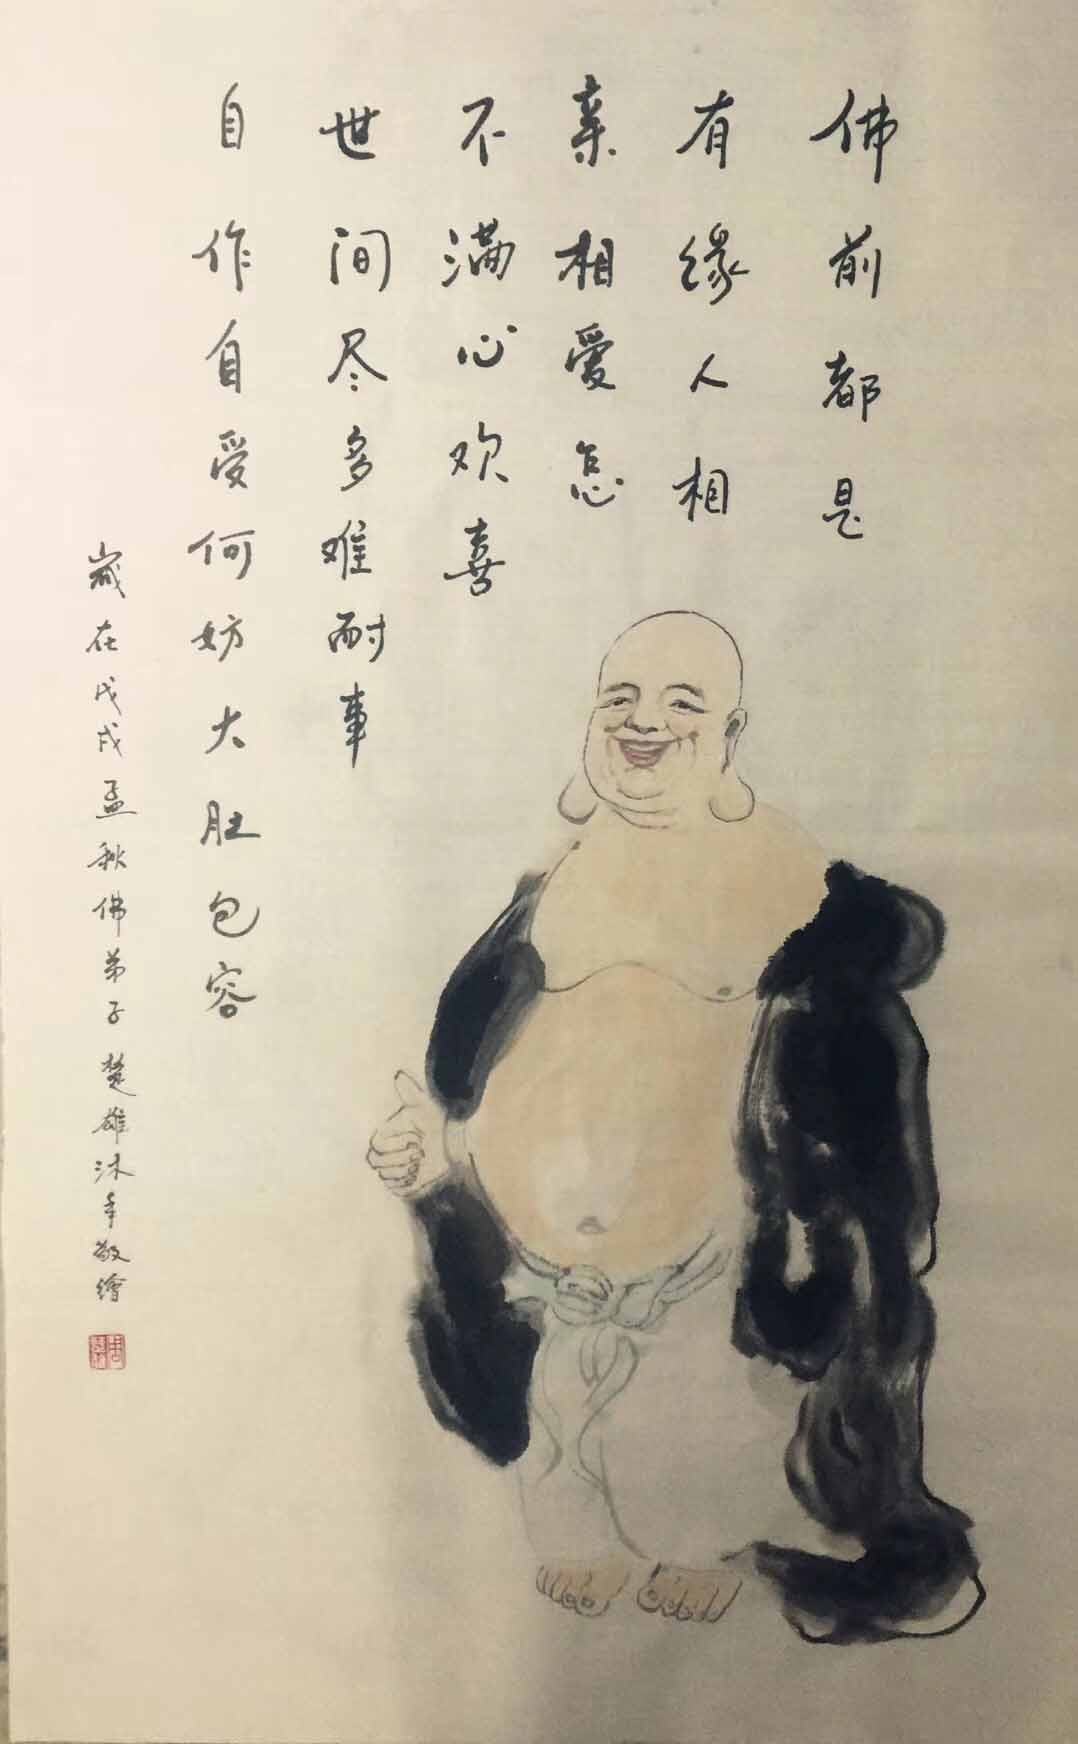 佛前都是
有缘人相
亲相爱怎
不满心欢喜
世间尽多难耐事
自作自受何妨大肚包容
嵗在戊戌孟秋佛弟子楚雄沐手敬繪